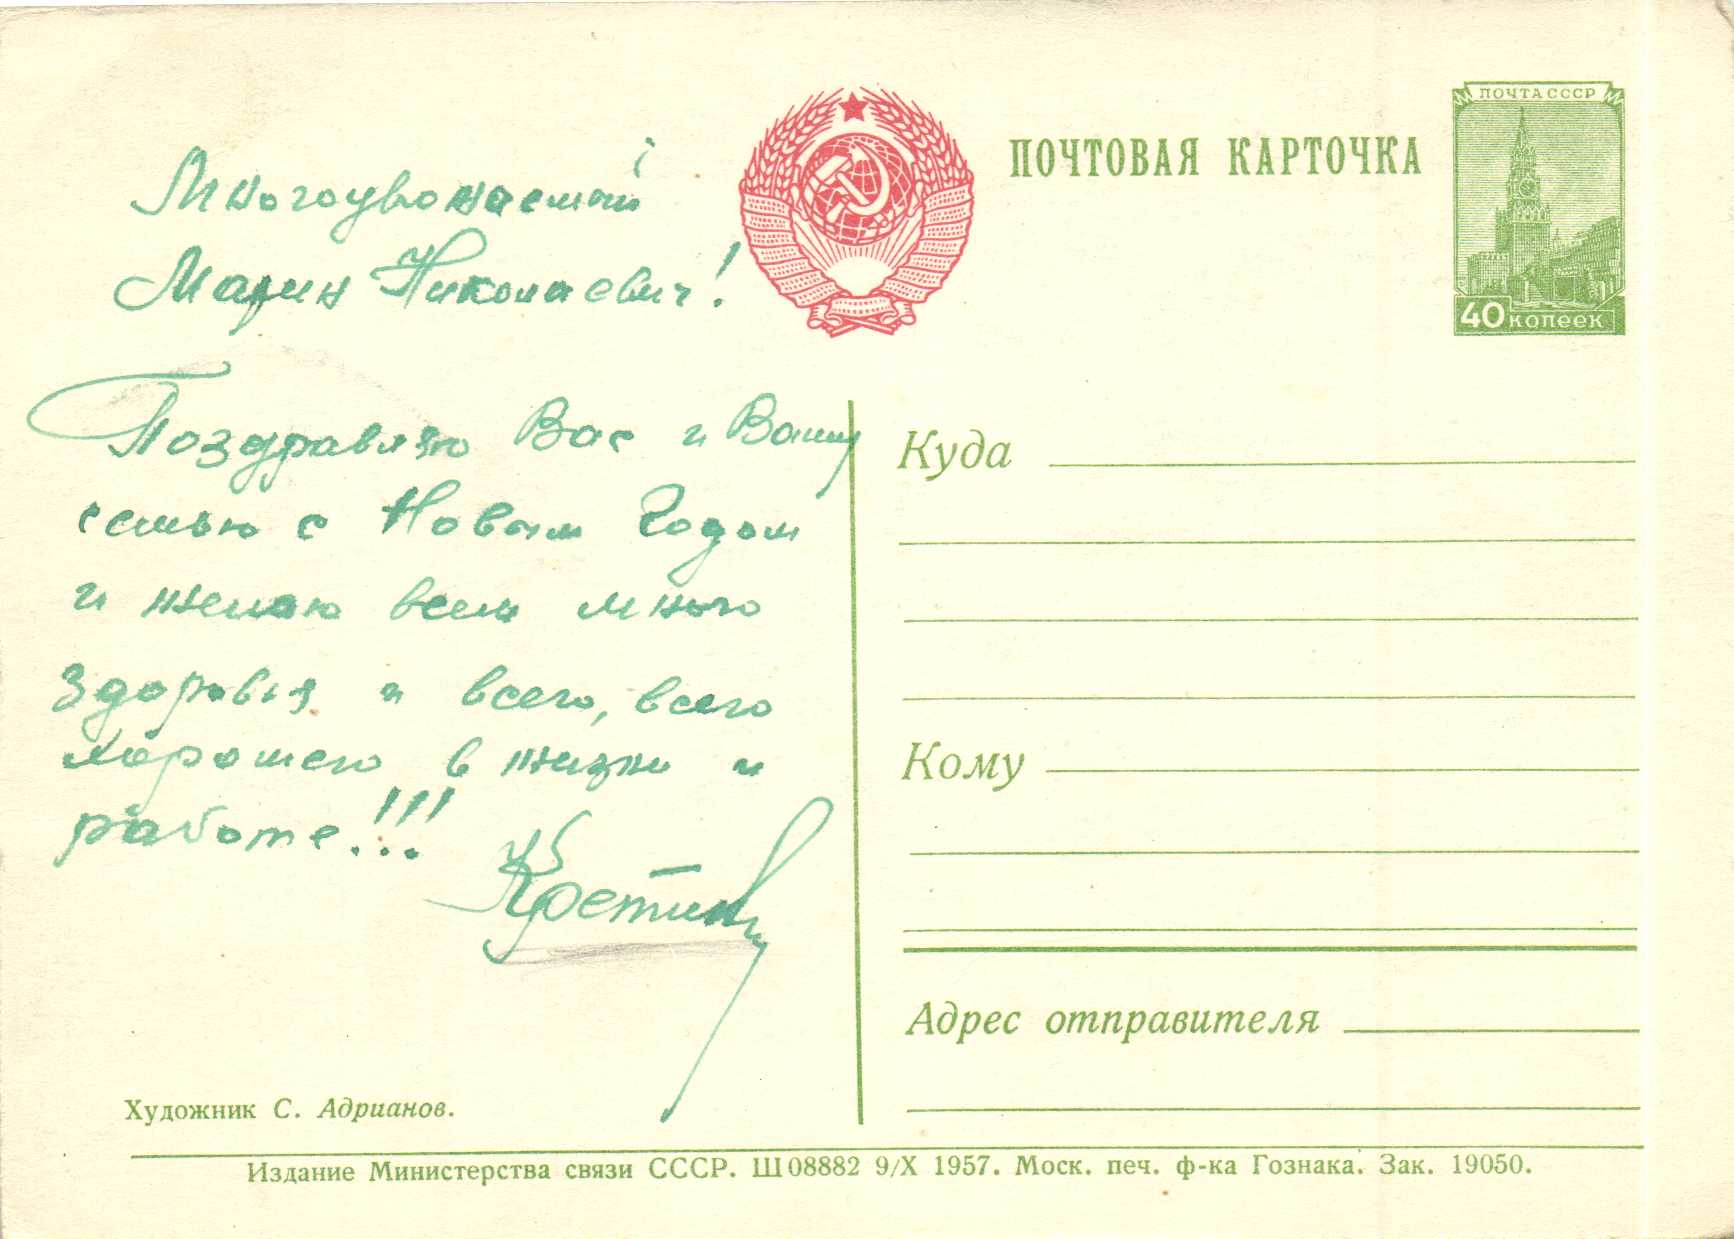 Многоуважаемый
Марин Николаевич!
Поздравляю Вас и Вашу
семью с Новым Годом
и желаю всем много
здоровья и всего, всего
хорошего в жизни и
работе!!!
ПОЧТОВАЯ КАРТОЧКА
ПОЧТА СССР
40 КОПЕЕК
Куда
Кому
Адрес отправителя
Художник С. Адрианов.
Издание Министерства связи СССР. Ш08882 9/X 1957. Моск. печ. ф-ка Гознака. Зак. 19050.